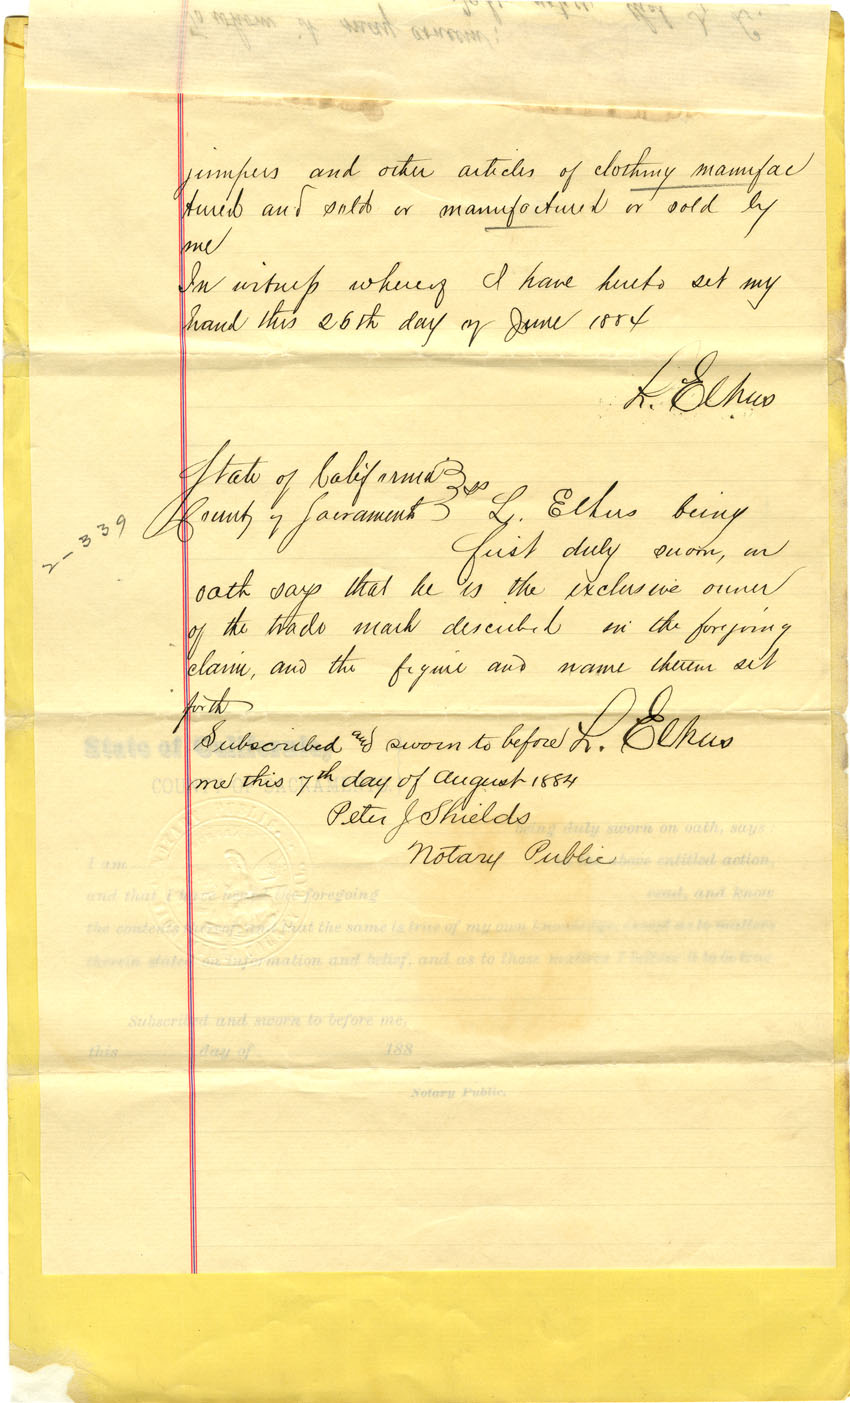 jumpers and other articles of clothing manufac
tured and sold or manufactured or sold by
me
In witness whereof I have hereto set my
hand this 26th day of June 1884
L. Elkus
State of California } ss
County of Sacramento } L. Elkus being
first duly sworn, on
oath says that he is the exclusive owner
of the trade mark described in the foregoing
claim, and the figure and name therein set
forth
2-339
L. Elkus
Subscribed and sworn to before
me this 7th day of August 1884
Peter J Shields
Notary Public
State of California
COUNTY OF SACRAMENTO
being duly sworn on oath, says:
I am
above entitled action,
and that I have read the foregoing
read, and know
the contents thereof and that the same is true of my own knowledge, except as to matters
therein stated on information and belief, and as to those matters I believe it to be true
Subscribed and sworn to before me,
this day of 188
Notary Public.
To whom it may concern: